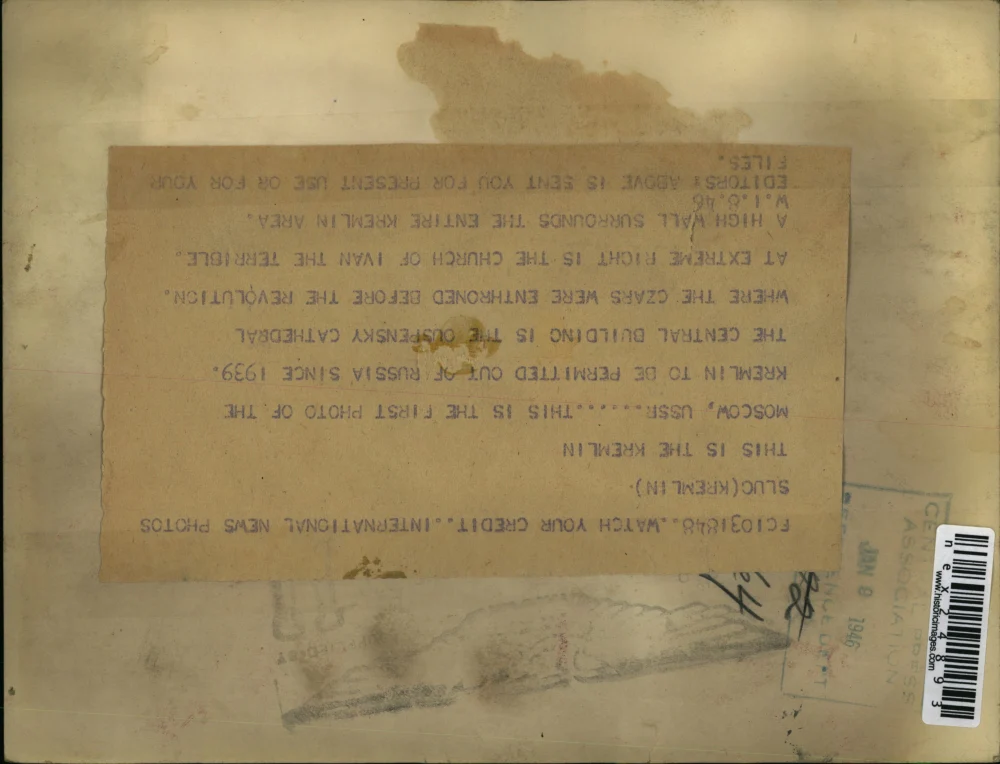 FC1031848..WATCH YOUR CREDIT..INTERNATIONAL NEWS PHOTOS
SLUG(KREMLIN)
THIS IS THE KREMLIN
MOSCOW, USSR......THIS IS THE FIRST PHOTO OF THE
KREMLIN TO BE PERMITTED OUT OF RUSSIA SINCE 1939.
THE CENTRAL BUILDING IS THE OUSPENSKY CATHEDRAL
WHERE THE CZARS WERE ENTHRONED BEFORE THE REVOLUTION.
AT EXTREME RIGHT IS THE CHURCH OF IVAN THE TERRIBLE.
A HIGH WALL SURROUNDS THE ENTIRE KREMLIN AREA.
W.1.8.46
EDITORS: ABOVE IS SENT YOU FOR PRESENT USE OR FOR YOUR
FILES.
PRESS
ASSOCIATION
JAN 9 1946
www.historicimages.com
nex24893